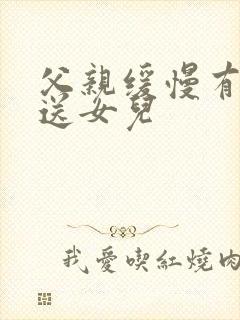 父親緩慢有
送女兒
我愛喫紅燒肉